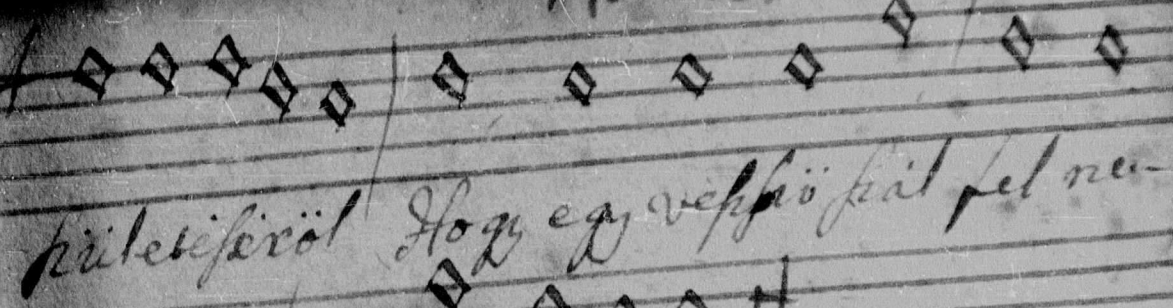 születéséről Hogy egy vessző szál fel nev-